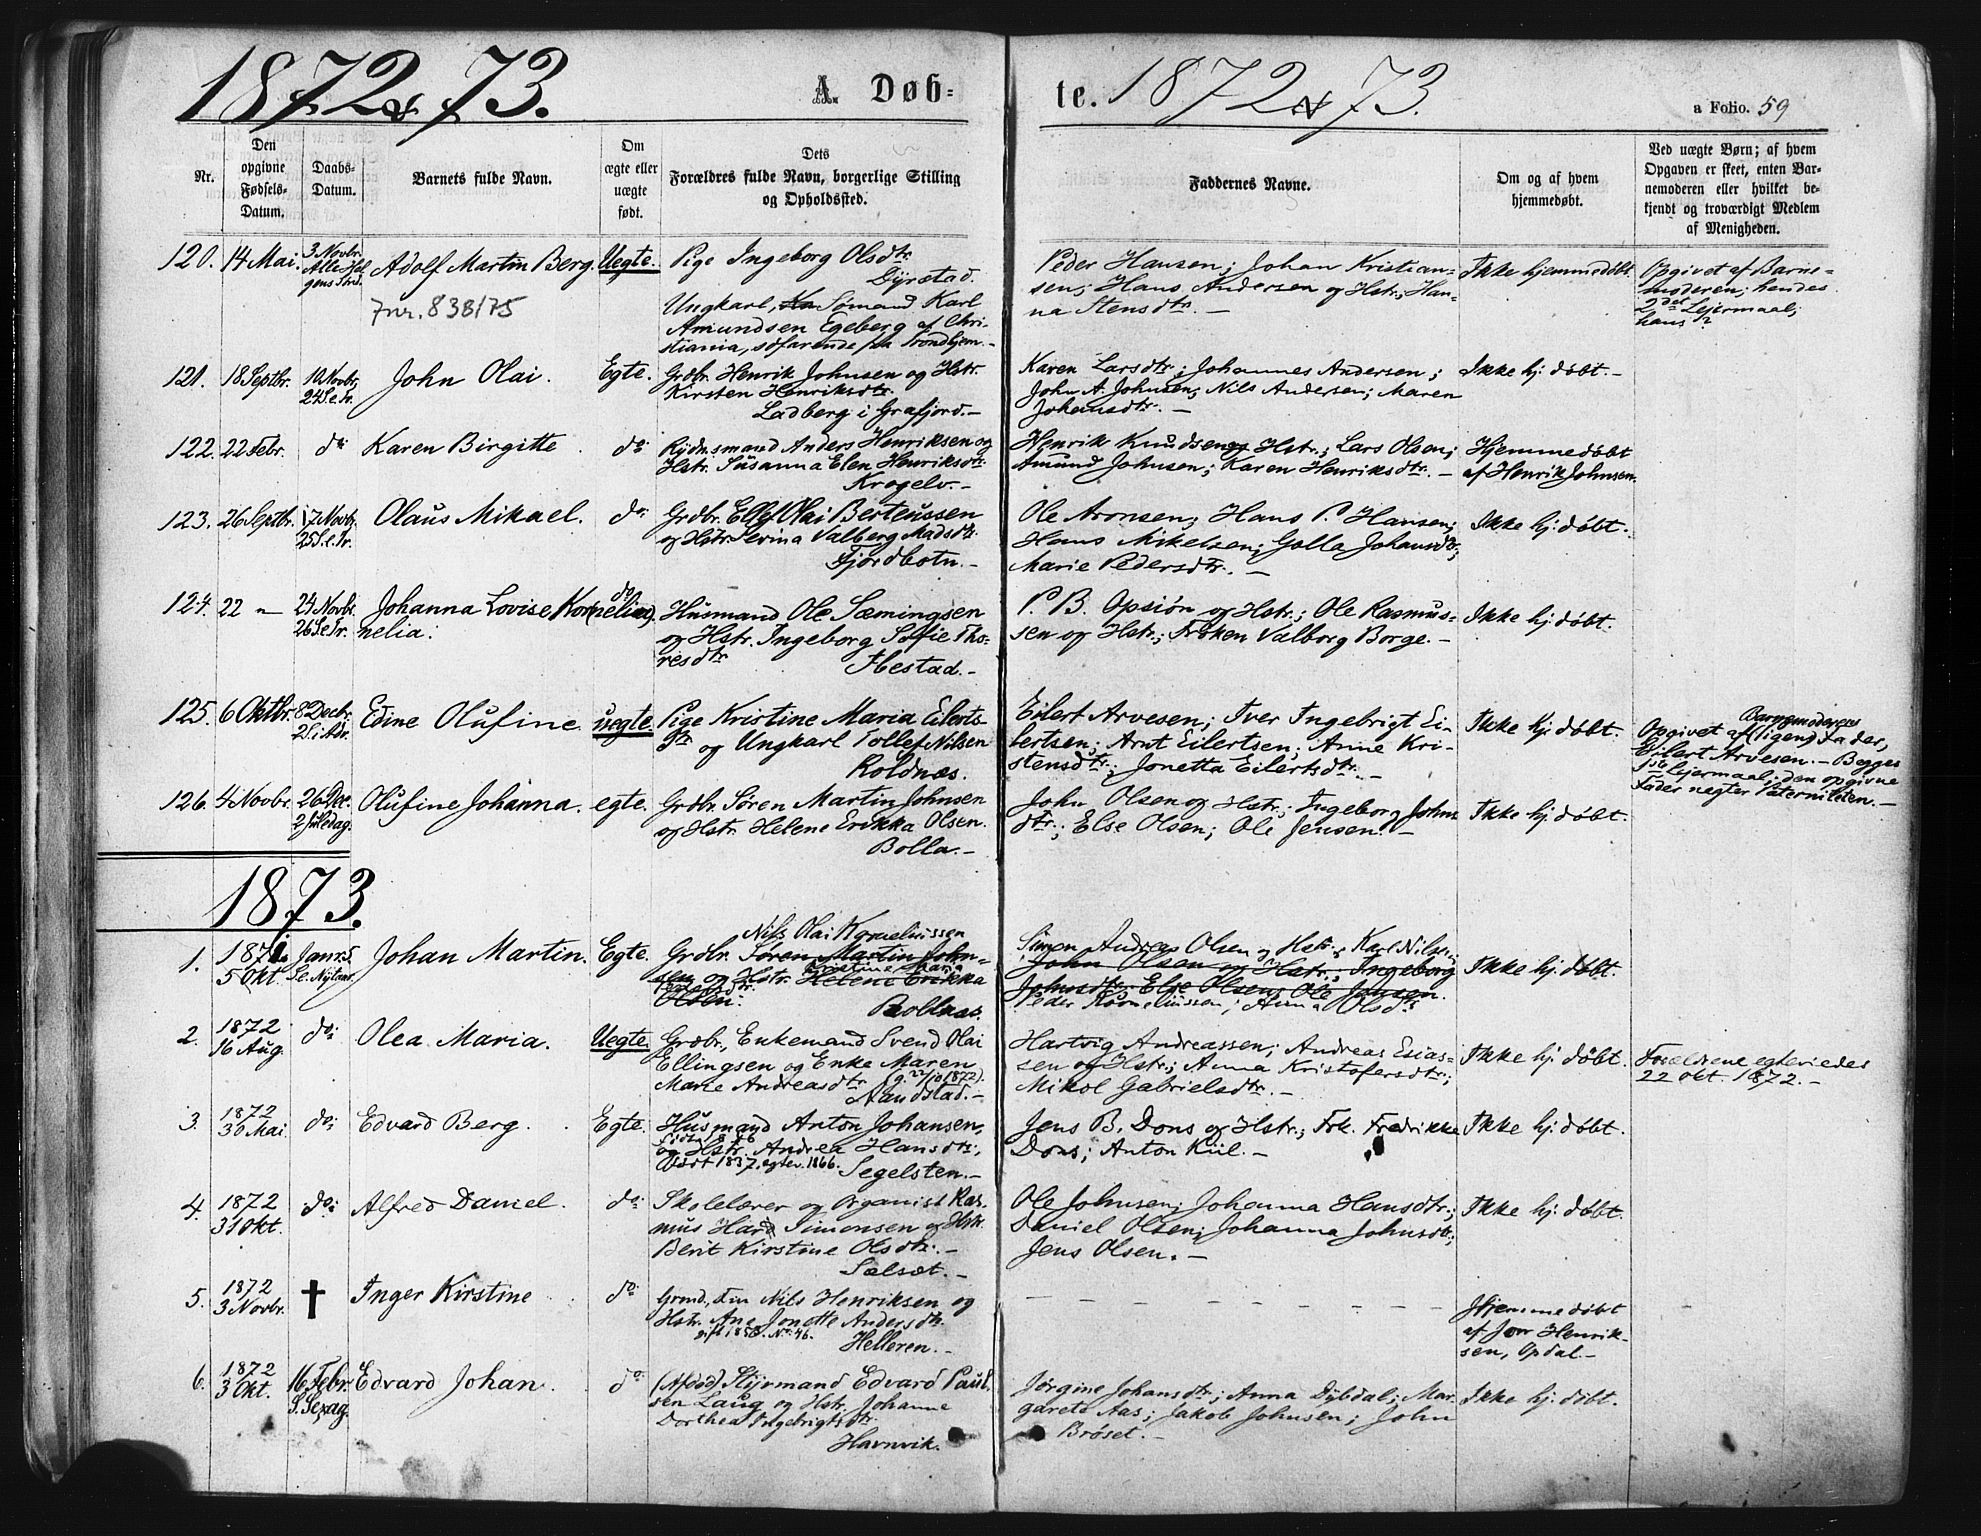 1872 & 73.
A Døb-
te. 1872 & 73.
a Folio. 59
Nr.
Den opgivne Fødsels-Datum.
Daabs-Datum.
Barnets fulde Navn.
Om ægte eller uægte født.
Dets Forældres fulde Navn, borgerlige Stilling og Opholdssted.
Faddernes Navne.
Om og af hvem hjemmedøbt.
Ved uægte Børn; af hvem Opgaven er skeet, enten Barnemoderen eller hvilket bekjendt og troværdigt Medlem af Menigheden.
120. 14 Mai. 3 Novbr. Alle Hel gens Sønd. Adolf Martin Berg. Uegte. Pige Ingeborg Olsdtr.
Dyrstad.
7nr. 838/75
Ungkarl, Sømand Karl
Amundsen Egeberg af Chri-
stiania, søfarende fra Trondhjem.-
Peder Hansen; Johan Kristian-
sen; Hans Andersen og Hstr.; Han-
na Stensdtr. -
Ikke hjemmedøbt.
Opgivet af Barne-
moderen; hendes
2det Lejermaal;
hans ?
121. 18 Septbr. 10 Novbr. 24 S.e.Tr. John Olai. Egte. Grdbr. Henrik Johnsen og Hstr.
Kirsten Henriksdtr.
Ladberg i Grafjord.-
Karen Larsdtr.; Johannes Andersen;
John A. Johnsen; Nils Andersen; Maren
Johansdtr. -
Ikke hj. døbt.-
122. 22 Febr. do: Karen Birgitte. do: Rydn.smand Anders Henriksen og
Hstr. Susanna Elen Henriksdtr.
Krogelv.-
Henrik Knudsen og Hstr.; Lars Olsen;
Amund Johnsen; Karen Henriksdtr. -
Hjemmedøbt
af Henrik Johnsen.
123. 26 Septbr. 17 Novbr. 25 S.e.Tr. Olaus Mikael. do: Grdbr. Ellef Olai Berteussen
og Hstr. Serina Valberg Madsdtr.
Fjordbotn.-
Ole Aronsen; Hans P. Hansen;
Hans Mikelsen; Golla Johansdtr;
Marie Pedersdtr. -
Ikke hj. døbt.
124. 22 " 24 Novbr. 26 S.e.Tr. Johanna Lovise Kor(nelia).
nelia. do: Husmand Ole Sæmingsen
og Hstr. Ingeborg Sofie Tho-
resdtr. Hestad.-
P. B. Opsiøn og Hstr.; Ole Rasmus-
sen og Hstr.; Frøken Valborg Borge.-
Ikke hj. døbt.
125. 6 Oktbr. 8 Decbr. 2 S. i Adv. Edine Olufine. uegte. Pige Kristine Maria Eilerts-
dtr. og Ungkarl Tollef Nilsen
Roldnæs.
Eilert Arvesen; Iver Ingebrigt Ei-
lertsen; Arnt Eilertsen; Anne Kri-
stensdtr.; Jonetta Eilertsdtr. -
Ikke hj. døbt.
Barnemoderens
Opgivet af (Pigens) Fader,
Eilert Arvesen.- Begges
1ste Lejermaal; den opgivne
Fader negter Paterniteten.-
126. 4 Novbr. 26 Dec. 2 Juledag. Olufine Johanna. egte. Grdbr. Søren Martin Johnsen
og Hstr. Helene Erikka Olsen.
Bolla.-
John Olsen og Hstr.; Ingeborg Johns
dtr.; Else Olsen; Ole Jensen. -
Ikke hj. døbt.
1873.
1. 1872 5 Okt. Janr. 5. S.e. Nytaar. Johan Martin. Egte. Grdbr. Nils Olai Kornelinssen
Søren Martin John-
sen og Hstr. Kristine Maria
Helene Erikka
Olsen.
Rollnæs.
Simon Andreas Olsen og Hstr.; Karl Nilsen;
John Olsen og Hstr.; Ingeborg
Johnsdtr; Else Olsen; Ole Jensen.
Peder Korneliussen; Anna Olsdtr.
Ikke hj. døbt.
2. 1872 16 Aug. do: Olea Maria. Uegte. Grdbr., Enkemand Svend Olai
Ellingsen og Enke Maren
Marie Andreasdtr. (g. 22/10 1872).
Nandstad.-
Hartvig Andreassen; Andreas Esias-
sen og Hstr.; Anna Kristofersdtr.;
Mikol Gabrielsdtr. -
Ikke hj. døbt.
Forældrene egteviedes
22 Okt. 1872. -
3. 1872 30 Mai do: Edvard Berg. Egte. Husmand Anton Johansen,
født 1846
og Hstr. Andrea Hansdtr;
født 1837, egtev. 1866. Segelsten.-
Jens B. Dons og Hstr.; Frk. Fredrikke
Dons; Anton Kiil. -
Ikke hj. døbt.
4. 1872 31 Okt. do: Alfred Daniel. do: Skolelærer og Organist Ras-
mus Hard Simonsen og Hstr.
Berit Kirstine Olsdtr. -
Salsæt.-
Ole Johnsen; Johanna Hansdtr.;
Daniel Olsen; Johanna Johnsdtr.;
Jens Olsen. -
Ikke hj. døbt.
5. 1872 3 Novbr. † Inger Kirstine do: Grmd., Fin Nils Henriksen og
Hstr. Ane Jonette Andersdtr.
gift 1858. No. 46.
Helleren.-
- - - - - - - -
Hjemmedøbt
af Jon Henrik-
sen, Opdal.-
6. 1872 3 Okt. 16 Febr. S. Sexag. Edvard Johan. do: (Afdød) Styrmand Edvard Paul-
sen Laug og Hstr. Johanne
Dorthea Ingebrigtsdtr.
Havnvik.
Jørgine Johansdtr.; Anna Dybdal; Mar-
garete Aas; Jakob Johnsen; John
Brøset. -
Ikke hj. døbt.